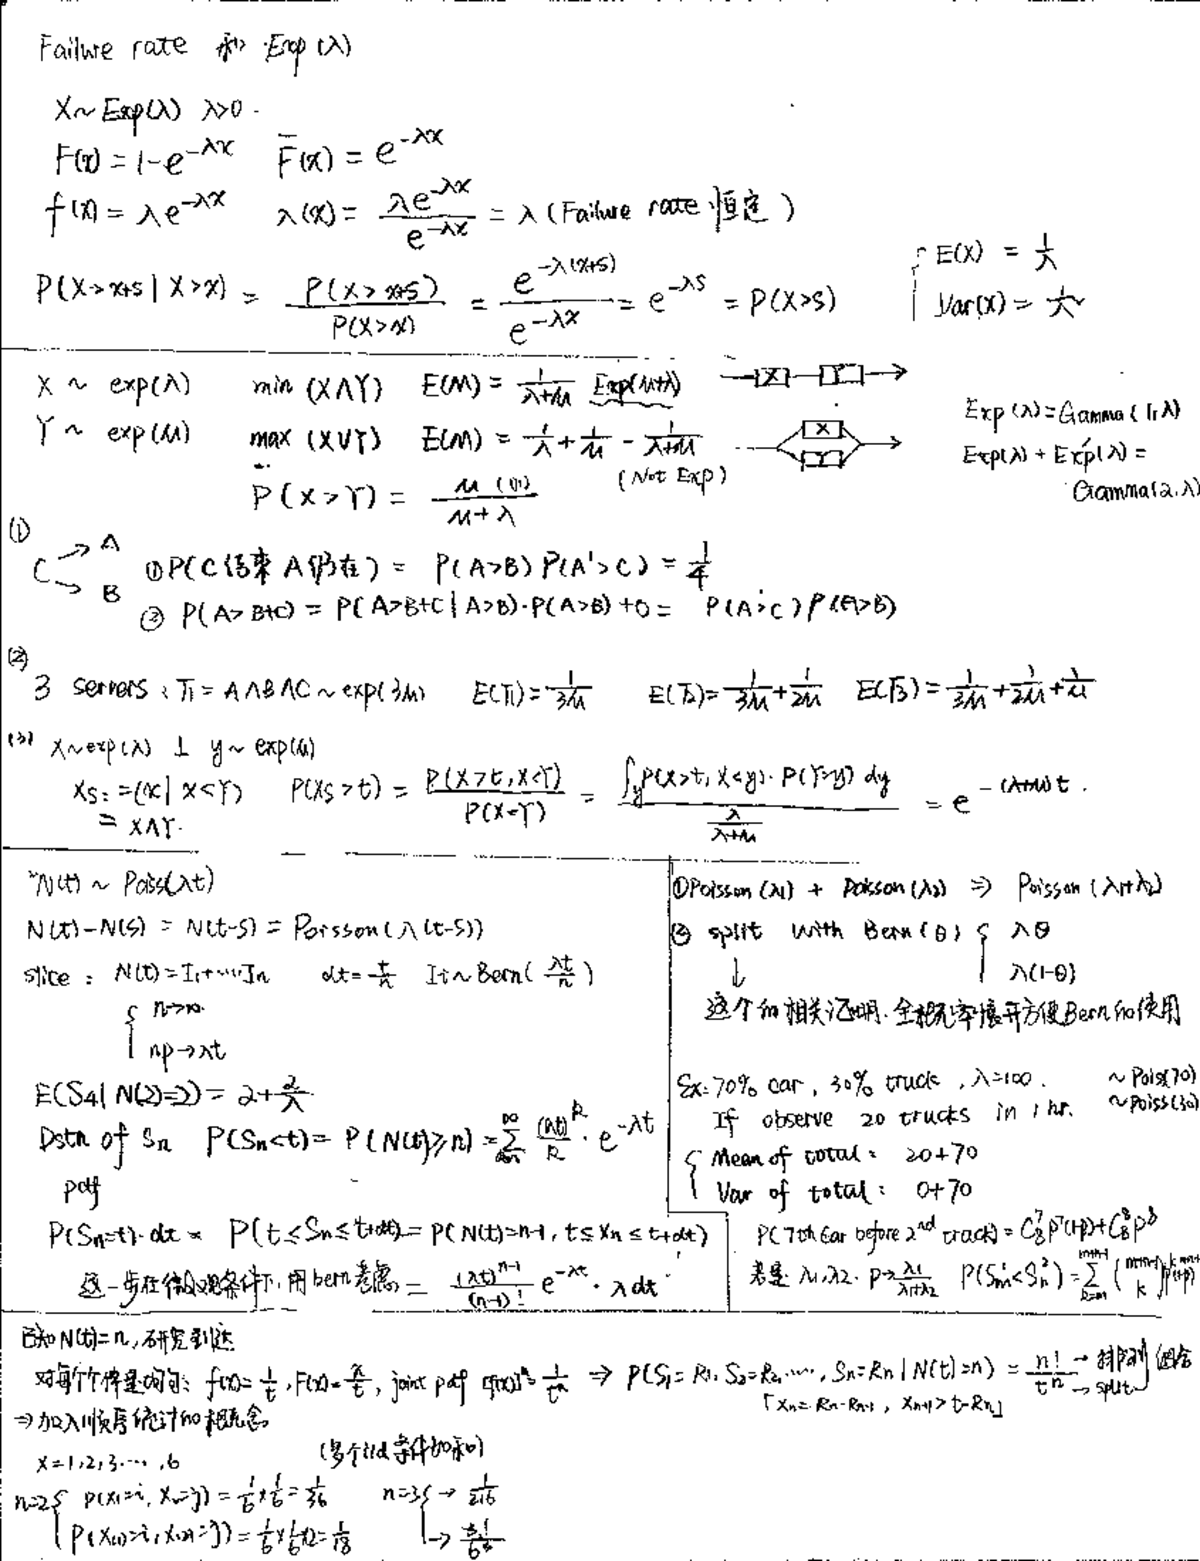 Failure rate 和 Exp(λ)
X~Exp(λ) λ>0.
F(x) = 1-e^{-λx} F̄(x) = e^{-λx}
f(x) = λe^{-λx} λ(x) = λe^{-λx} / e^{-λx} = λ (Failure rate 恒定)
P(X>x+s | X>x) = P(X>x+s) / P(X>x) = e^{-λ(x+s)} / e^{-λx} = e^{-λs} = P(X>s)
{ E(X) = 1/λ
Var(X) =
X ~ exp(λ) min (X∧Y) E(M) = 1/(λ+μ) Exp(μ+λ) → X → Y →
Y ~ exp(μ) max (X∨Y) E(M) = 1/λ + 1/μ - 1/(λ+μ) (Not Exp) X Y
Exp(λ) = Gamma(1,λ)
Exp(λ) + Exp(λ) =
Gamma(2,λ)
P(X>Y) = μ / (μ+λ)
(1)
C → A
→ B
① P(C结束 A仍在) = P(A>B) P(A'>C) = 1/4
② P(A>B+C) = P(A>B+C | A>B)·P(A>B) + 0 = P(A>C) P(A>B)
(2)
3 servers: T₁ = A∧B∧C ~ exp(3μ) E(T₁) = 1/3μ E(T₂) = 1/3μ + 1/2μ E(T₃) = 1/3μ + 1/2μ + 1/μ
(3) X~exp(λ) ⊥ y~exp(μ)
Xs: = (x | x<Y) P(Xs>t) = P(X>t, X<Y) / P(X<Y) = ∫_y P(X>t, X<y)·P(Y=y) dy / (λ/(λ+μ)) = e^{-(λ+μ)t}.
= X∧Y.
N(t) ~ Poiss(λt)
N(t)-N(s) = N(t-s) = Poisson(λ(t-s))
slice: N(t) = I₁+…Iₙ dt = t/n Iᵢ ~ Bern(λt/n)
{ n→∞
np→λt
E(S4 | N(2)=2) = 2 + 2/λ
Dstn of Sn P(Sn<t) = P(N(t)≥n) = Σ (λt)^k / k · e^{-λt}
pdf
P(Sn=t)·dt = P(t≤Sn≤t+dt) = P(N(t)=n-1, t≤Xn≤t+dt)
这一步在微观条件下, 用bern考虑 = (λt)^{n-1} / (n-1)! e^{-λt}·λdt
① Poisson(λ1) + Poisson(λ2) ⇒ Poisson(λ1+λ2)
② split with Bern(θ) { λθ
λ(1-θ)
↓
这个的相关证明. 全概率展开方便Bern的使用
Ex: 70% car, 30% truck, λ=100. ~Pois(70)
If observe 20 trucks in 1 hr. ~Poiss(30)
{ Mean of total: 20+70
Var of total: 0+70
P(7th Car before 2nd truck) = C₈⁷ p⁷(1-p) + C₈⁸ p⁸
若是 λ1, λ2. p→ λ1/(λ1+λ2) P(Sm¹<Sn²) = Σ_{k=m}^{m+n-1} (m+n-1 k) p^k (1-p)^{m+n-1-k}
已知N(t)=n, 研究到达
对每个件是均匀: f(x) = 1/t, F(x) = x/t, joint pdf [f(x)]ⁿ = 1/tⁿ ⇒ P(S₁=R₁, S₂=R₂, …, Sn=Rn | N(t)=n) = n!/tⁿ → 排列组合 → split
「Xn = Rn-Rn-1, Xn+1 > t-Rn」
⇒ 加入顺序统计的概念
x=1,2,3…,6 (多个iid条件的和)
n=2 { P(X₁=i, X₂=j) = 1/6 × 1/6 = 1/36 n=3 { → 1/216
P(X(1)=i, X(2)=j) = 1/6 × 1/6 × 2 = 1/18 → 3!/6³